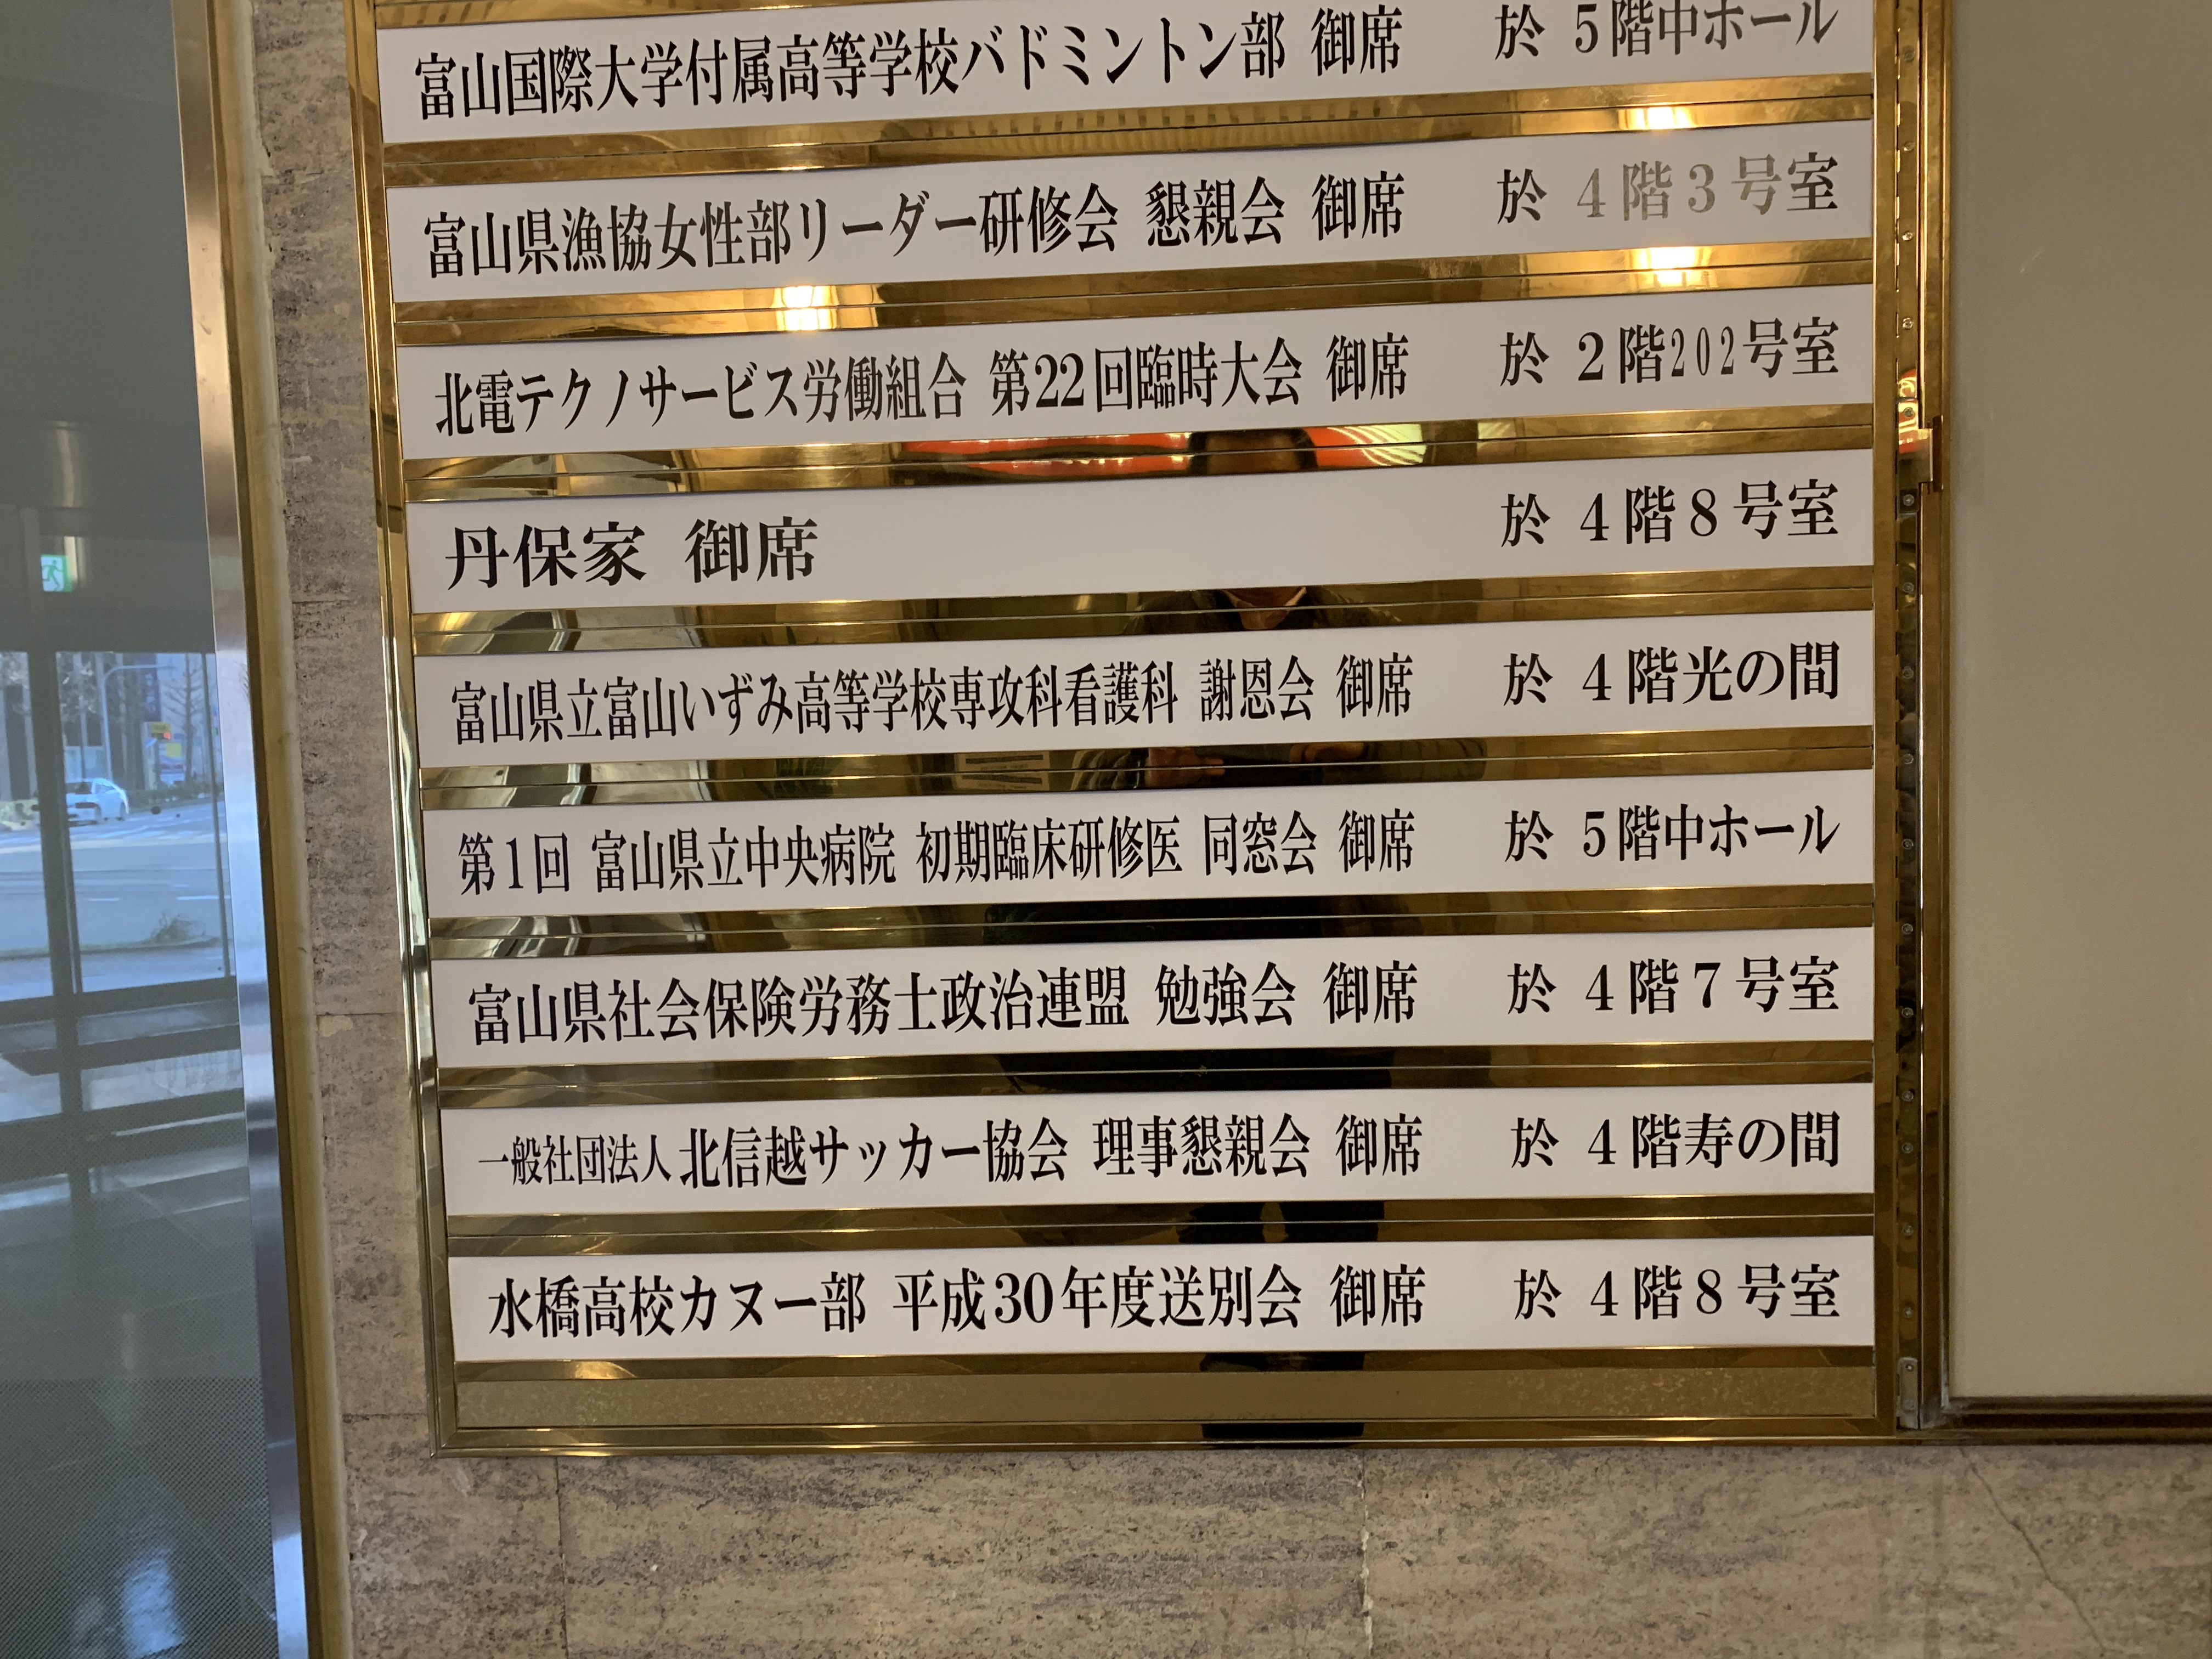 富山国際大学付属高等学校バドミントン部 御席 於 5階中ホール
富山県漁協女性部リーダー研修会 懇親会 御席 於 4階3号室
北電テクノサービス労働組合 第22回臨時大会 御席 於 2階202号室
丹保家 御席 於 4階8号室
富山県立富山いずみ高等学校専攻科看護科 謝恩会 御席 於 4階光の間
第1回 富山県立中央病院 初期臨床研修医 同窓会 御席 於 5階中ホール
富山県社会保険労務士政治連盟 勉強会 御席 於 4階7号室
一般社団法人北信越サッカー協会 理事懇親会 御席 於 4階寿の間
水橋高校カヌー部 平成30年度送別会 御席 於 4階8号室